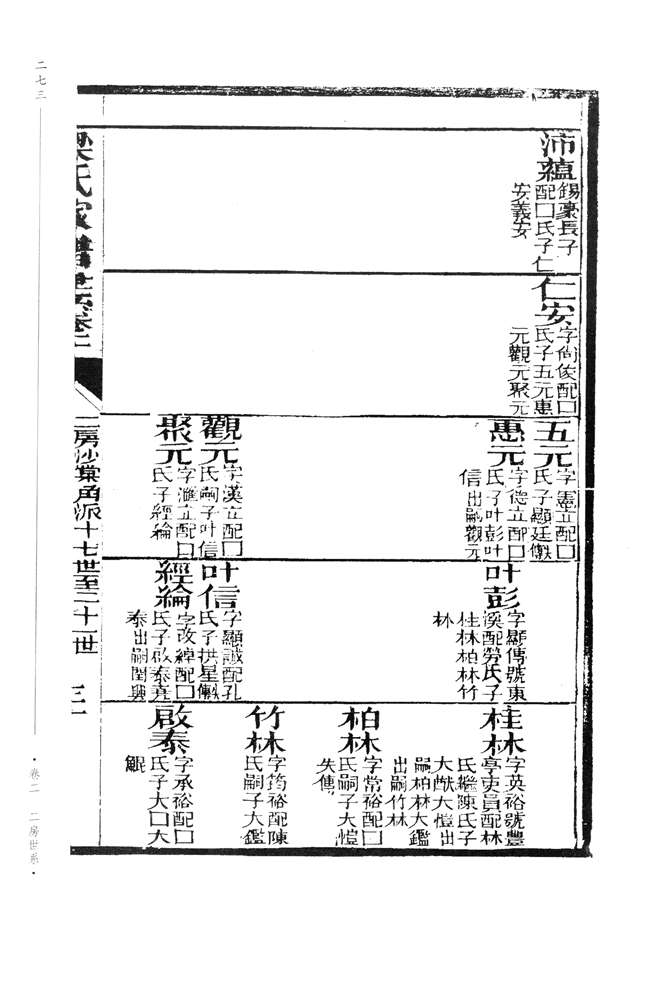 沛蘊
錫豪長子
配口氏子仁
安義安
仁安
字尚俊配口
氏子五元惠
元觀元聚元
五元
字憲立配口
氏子顯廷
惠元
字德立配口
氏子叶彭叶
信出嗣觀元
觀元
字漢立配口
氏嗣子叶信
聚元
字滙立配口
氏子經綸
叶彭
字顯傳號東
溪配勞氏子
桂林柏林竹
林
叶信
字顯誠配孔
氏子拱星
經綸
字改綽配口
氏子啟泰堯
泰出嗣閏興
桂林
字英裕號豐
亭吏員配林
氏繼陳氏子
大猷大愷出
嗣柏林大鑑
出嗣竹林
柏林
字常裕配口
氏嗣子大愷
失傳
竹林
字筠裕配陳
氏嗣子大鑑
啟泰
字承裕配口
氏子大口大
梁氏家譜世系卷二
二房沙棠角派十七世至二十一世
二七三
卷二 二房世系